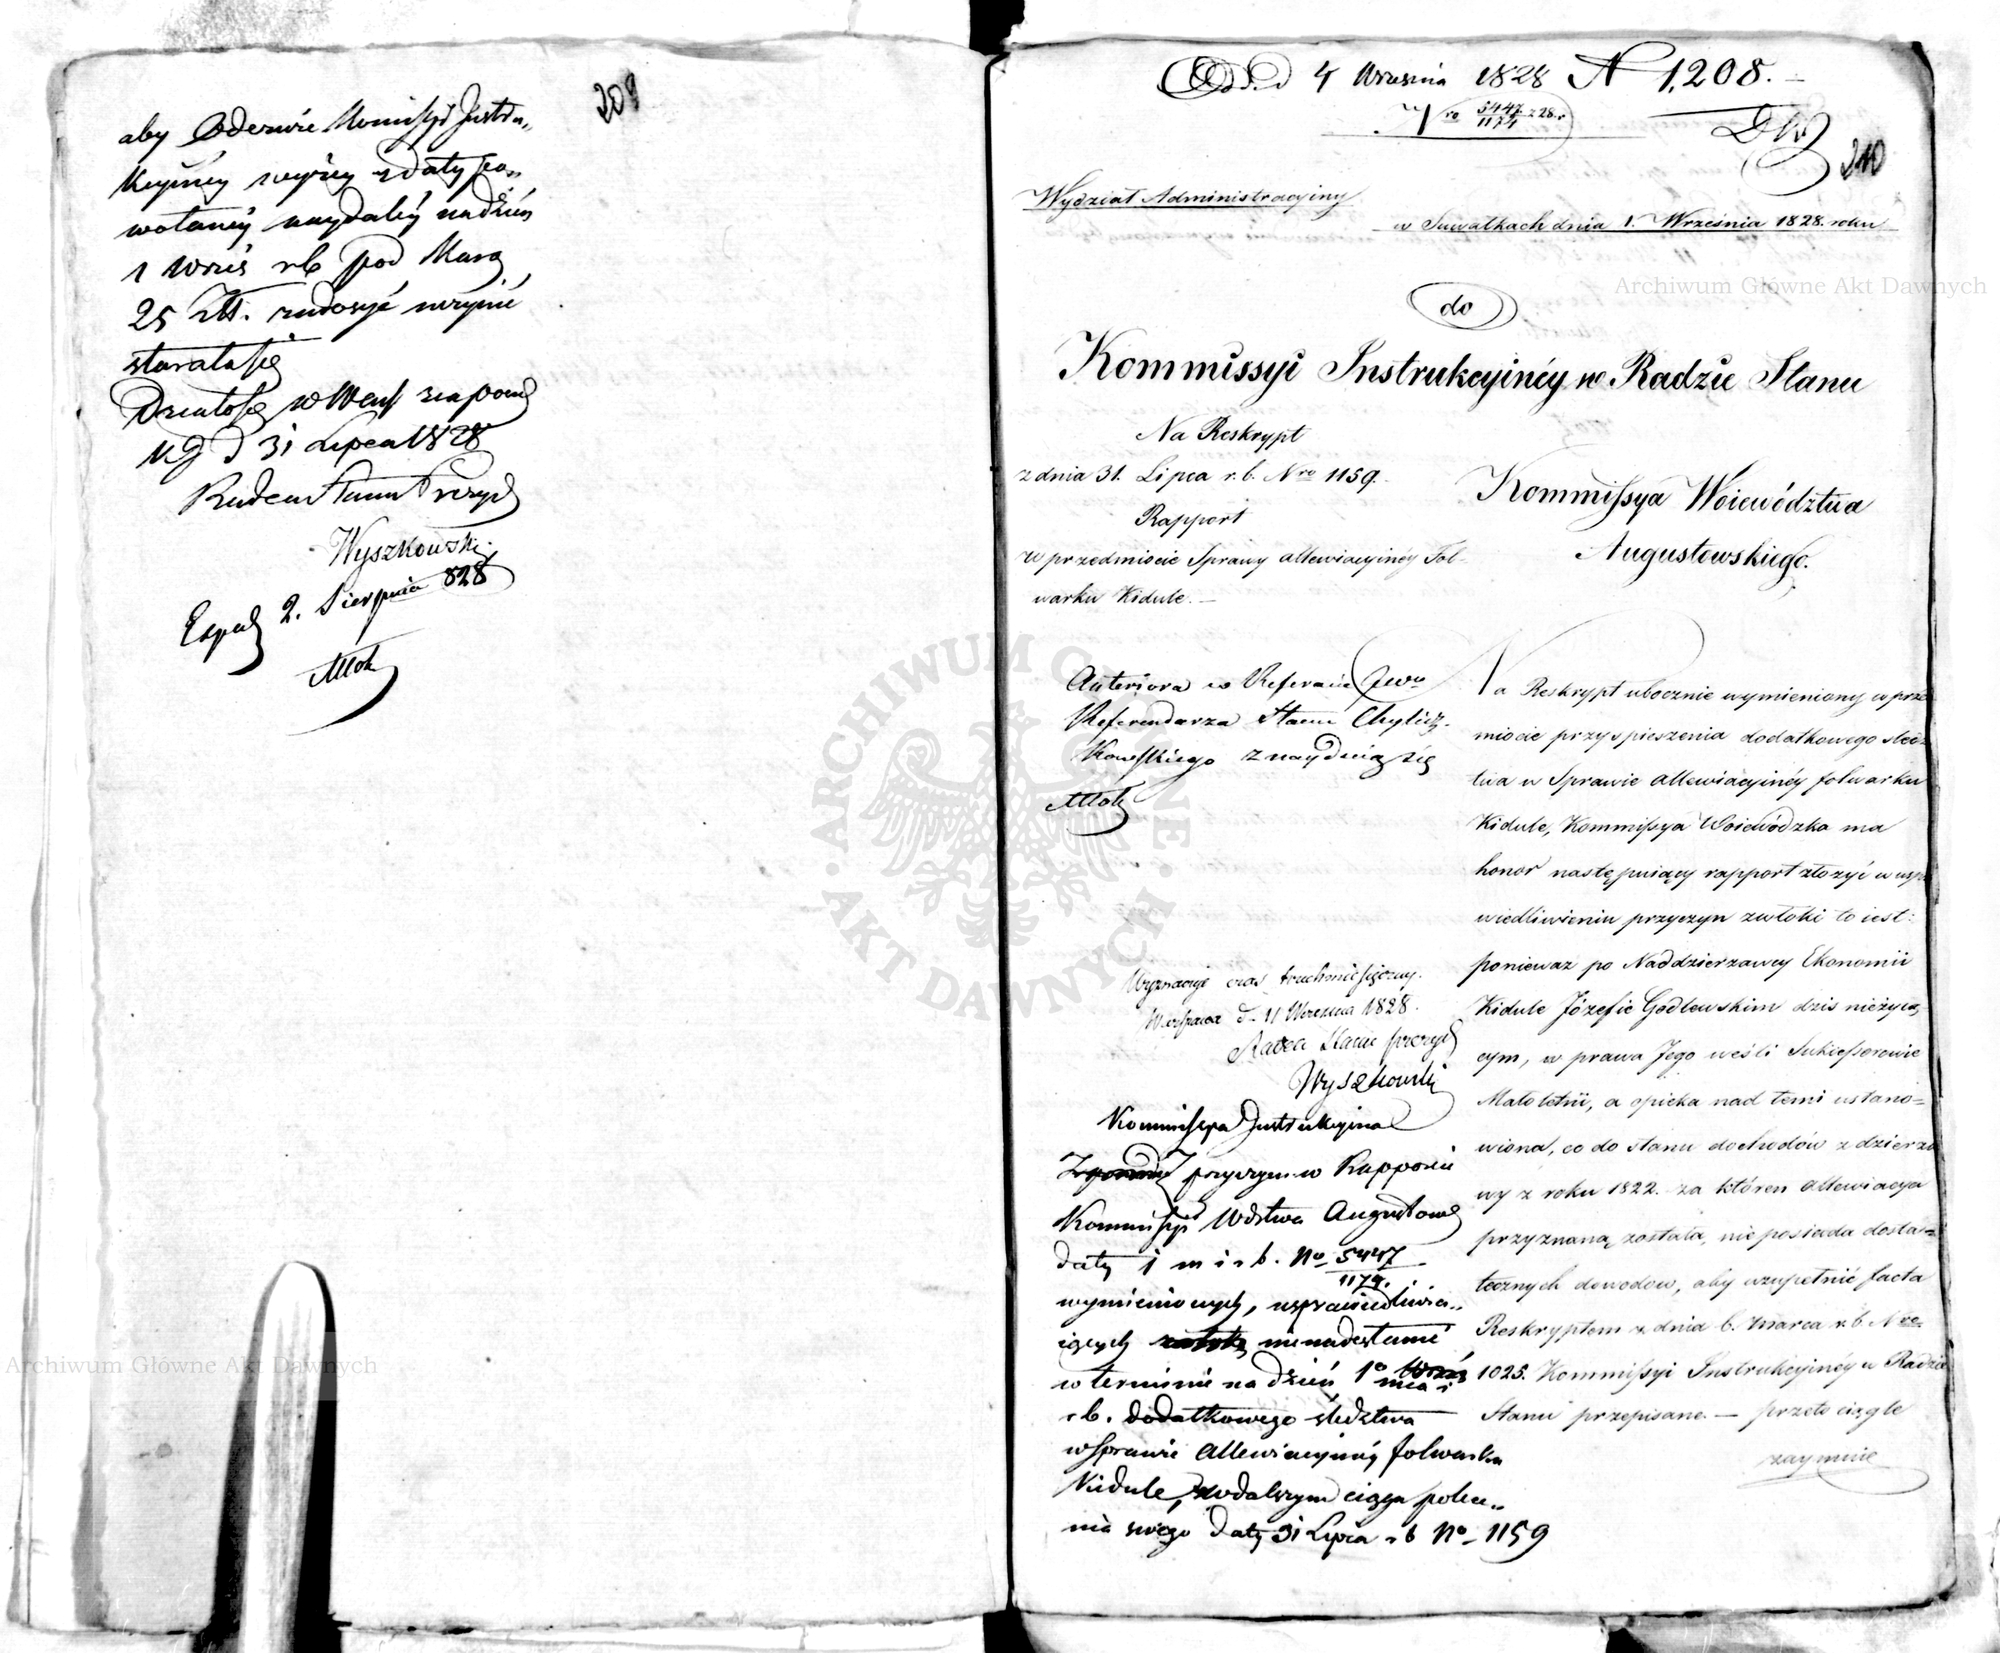 209
aby Odezwie Kommissyi Instru„
kcyinéy wyżey z daty po„
wołanéy naydaléy na dzień
1 Wrześ rb pod Karą
25 Złł. zadosyć uczynić
starała się
Działo się w Warsz na posied
KJ d 31 Lipca 1828
Radca Stanu Prezyd
Wyszkowski
Exped 2. Sierpnia 828
d 4 Wrzesnia 1828 N 1,208.
Nro 5447/1174 z 28. r
210
Wydział Administracyiny
w Suwałkach dnia 1. Września 1828. roku
do
Kommissyi Instrukcyinéy w Radzie Stanu
Na Reskrypt
z dnia 31. Lipca r. b. Nro 1159.
Rapport
w przedmiocie Sprawy allewiacyinéy Fol-
warku Kidule. —
Kommissya Woiewództwa
Augustowskiego.
Anteriora w Referacie Jwo
Referendarza Stanu Chylicz-
kowskiego znayduią się
Wyznacza czas trzechmiesięczny.
Warszawa d. 11 Wrzesnia 1828.
Radca Stanu prezyd
Wyszkowski
Kommissya Instrukcyina
przyczyn w Rapporcie
Kommissyi Wdztwa Augustows
daty 1 m i r. b. No 5447/1174.
wymienionych, usprawiedliwia„
iących nienadesłanie
w terminie na dzień 1o mca i
r b. dodatkowego śledztwa
w Sprawie Allewiacyinéy folwarku
Kidule, w dalszym ciągu polece„
nia swego daty 31 Lipca r b No 1159
Na Reskrypt ubocznie wymieniony w prze
miocie przyspieszenia dodatkowego śledz
twa w Sprawie allewiacyinéy folwarku
Kidule, Kommissya Woiewódzka ma
honor następuiący rapport złożyć w uspra
wiedliwieniu przyczyn zwłoki to iest:
ponieważ po Naddzierzawcy Ekonomii
Kidule Józefie Godlewskim dziś nieżyią
cym, w prawa Jego weśli Sukcessorowie
Małoletni, a opieka nad temi ustano=
wiona, co do stanu dochodów z dzierża
wy z roku 1822. za któren allewiacya
przyznaną została, nie posiada dosta=
tecznych dowodów, aby uzupełnić facta
Reskryptem z dnia 6. Marca r. b Nro
1025. Kommissyi Instrukcyinéy w Radzie
Stanu przepisane. — przeto ciągle
zaymuie
Archiwum Główne Akt Dawnych
ARCHIWUM GŁÓWNE AKT DAWNYCH
Archiwum Główne Akt Dawnych